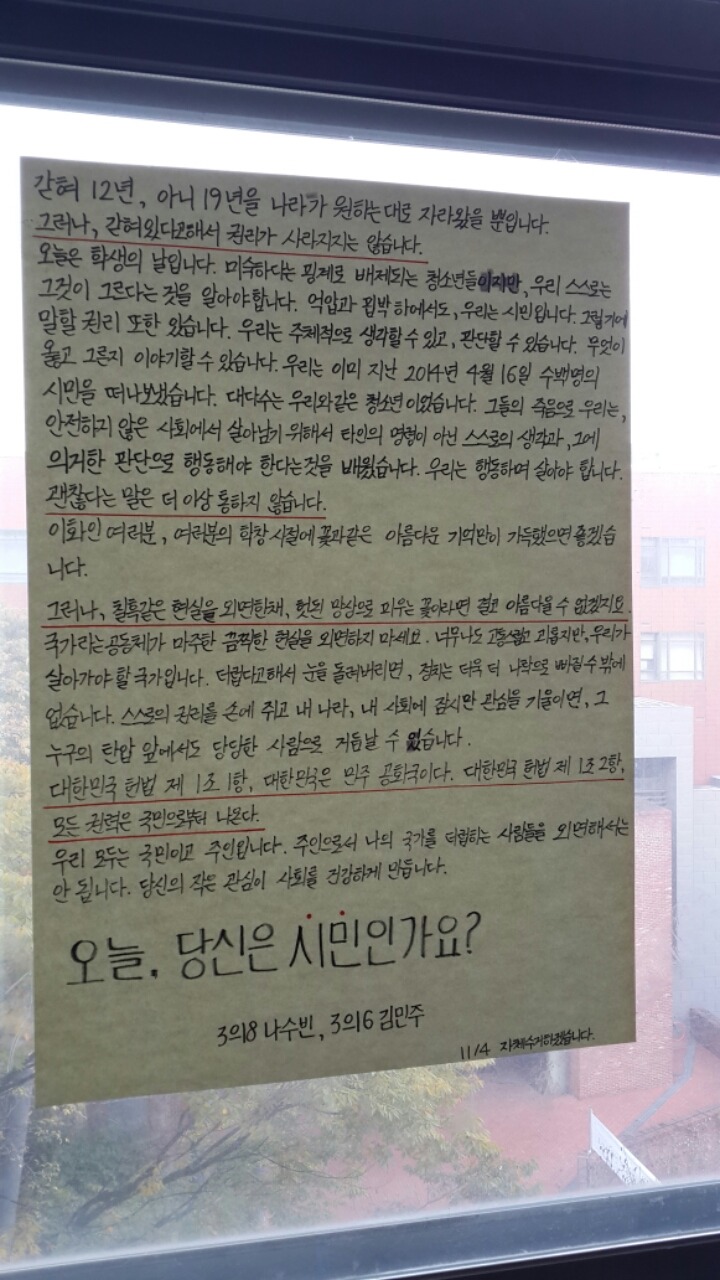 갇혀 12년, 아니 19년을 나라가 원하는대로 자라왔을 뿐입니다.
그러나, 갇혀있다고해서 권리가 사라지지는 않습니다.
오늘은 학생의 날입니다. 미숙하다는 핑계로 배제되는 청소년들이지만, 우리 스스로는
그것이 그르다는 것을 알아야합니다. 억압과 핍박 하에서도, 우리는 시민입니다. 그렇기에
말할 권리 또한 있습니다. 우리는 주체적으로 생각할 수 있고, 판단할 수 있습니다. 무엇이
옳고 그른지 이야기할 수 있습니다. 우리는 이미 지난 2014년 4월 16일 수백명의
시민을 떠나보냈습니다. 대다수는 우리와같은 청소년이었습니다. 그들의 죽음으로 우리는,
안전하지 않은 사회에서 살아남기 위해서 타인의 명령이 아닌 스스로의 생각과, 그에
의거한 판단으로 행동해야 한다는것을 배웠습니다. 우리는 행동하며 살아야 합니다.
괜찮다는 말은 더 이상 통하지 않습니다.
이화인 여러분, 여러분의 학창시절에 꽃과같은 아름다운 기억만이 가득했으면 좋겠습
니다.
그러나, 칠흑같은 현실을 외면한채, 헛된 망상으로 피우는 꽃이라면 결코 아름다울 수 없겠지요.
국가라는공동체가 마주한 끔찍한 현실을 외면하지 마세요. 너무나도 고통스럽고 괴롭지만, 우리가
살아가야 할 국가입니다. 더럽다고해서 눈을 돌려버리면, 정치는 더욱 더 나락으로 빠질 수 밖에
없습니다. 스스로의 권리를 손에 쥐고 내 나라, 내 사회에 잠시만 관심을 기울이면, 그
누구의 탄압 앞에서도 당당한 사람으로 거듭날 수 있습니다.
대한민국 헌법 제 1조 1항, 대한민국은 민주 공화국이다. 대한민국 헌법 제 1조 2항,
모든 권력은 국민으로부터 나온다.
우리 모두는 국민이고 주인입니다. 주인으로서 나의 국가를 더럽히는 사람들을 외면해서는
안 됩니다. 당신의 작은 관심이 사회를 건강하게 만듭니다.
오늘, 당신은 시민인가요?
3의8 나수빈, 3의6 김민주
11/4 자체수거하겠습니다.